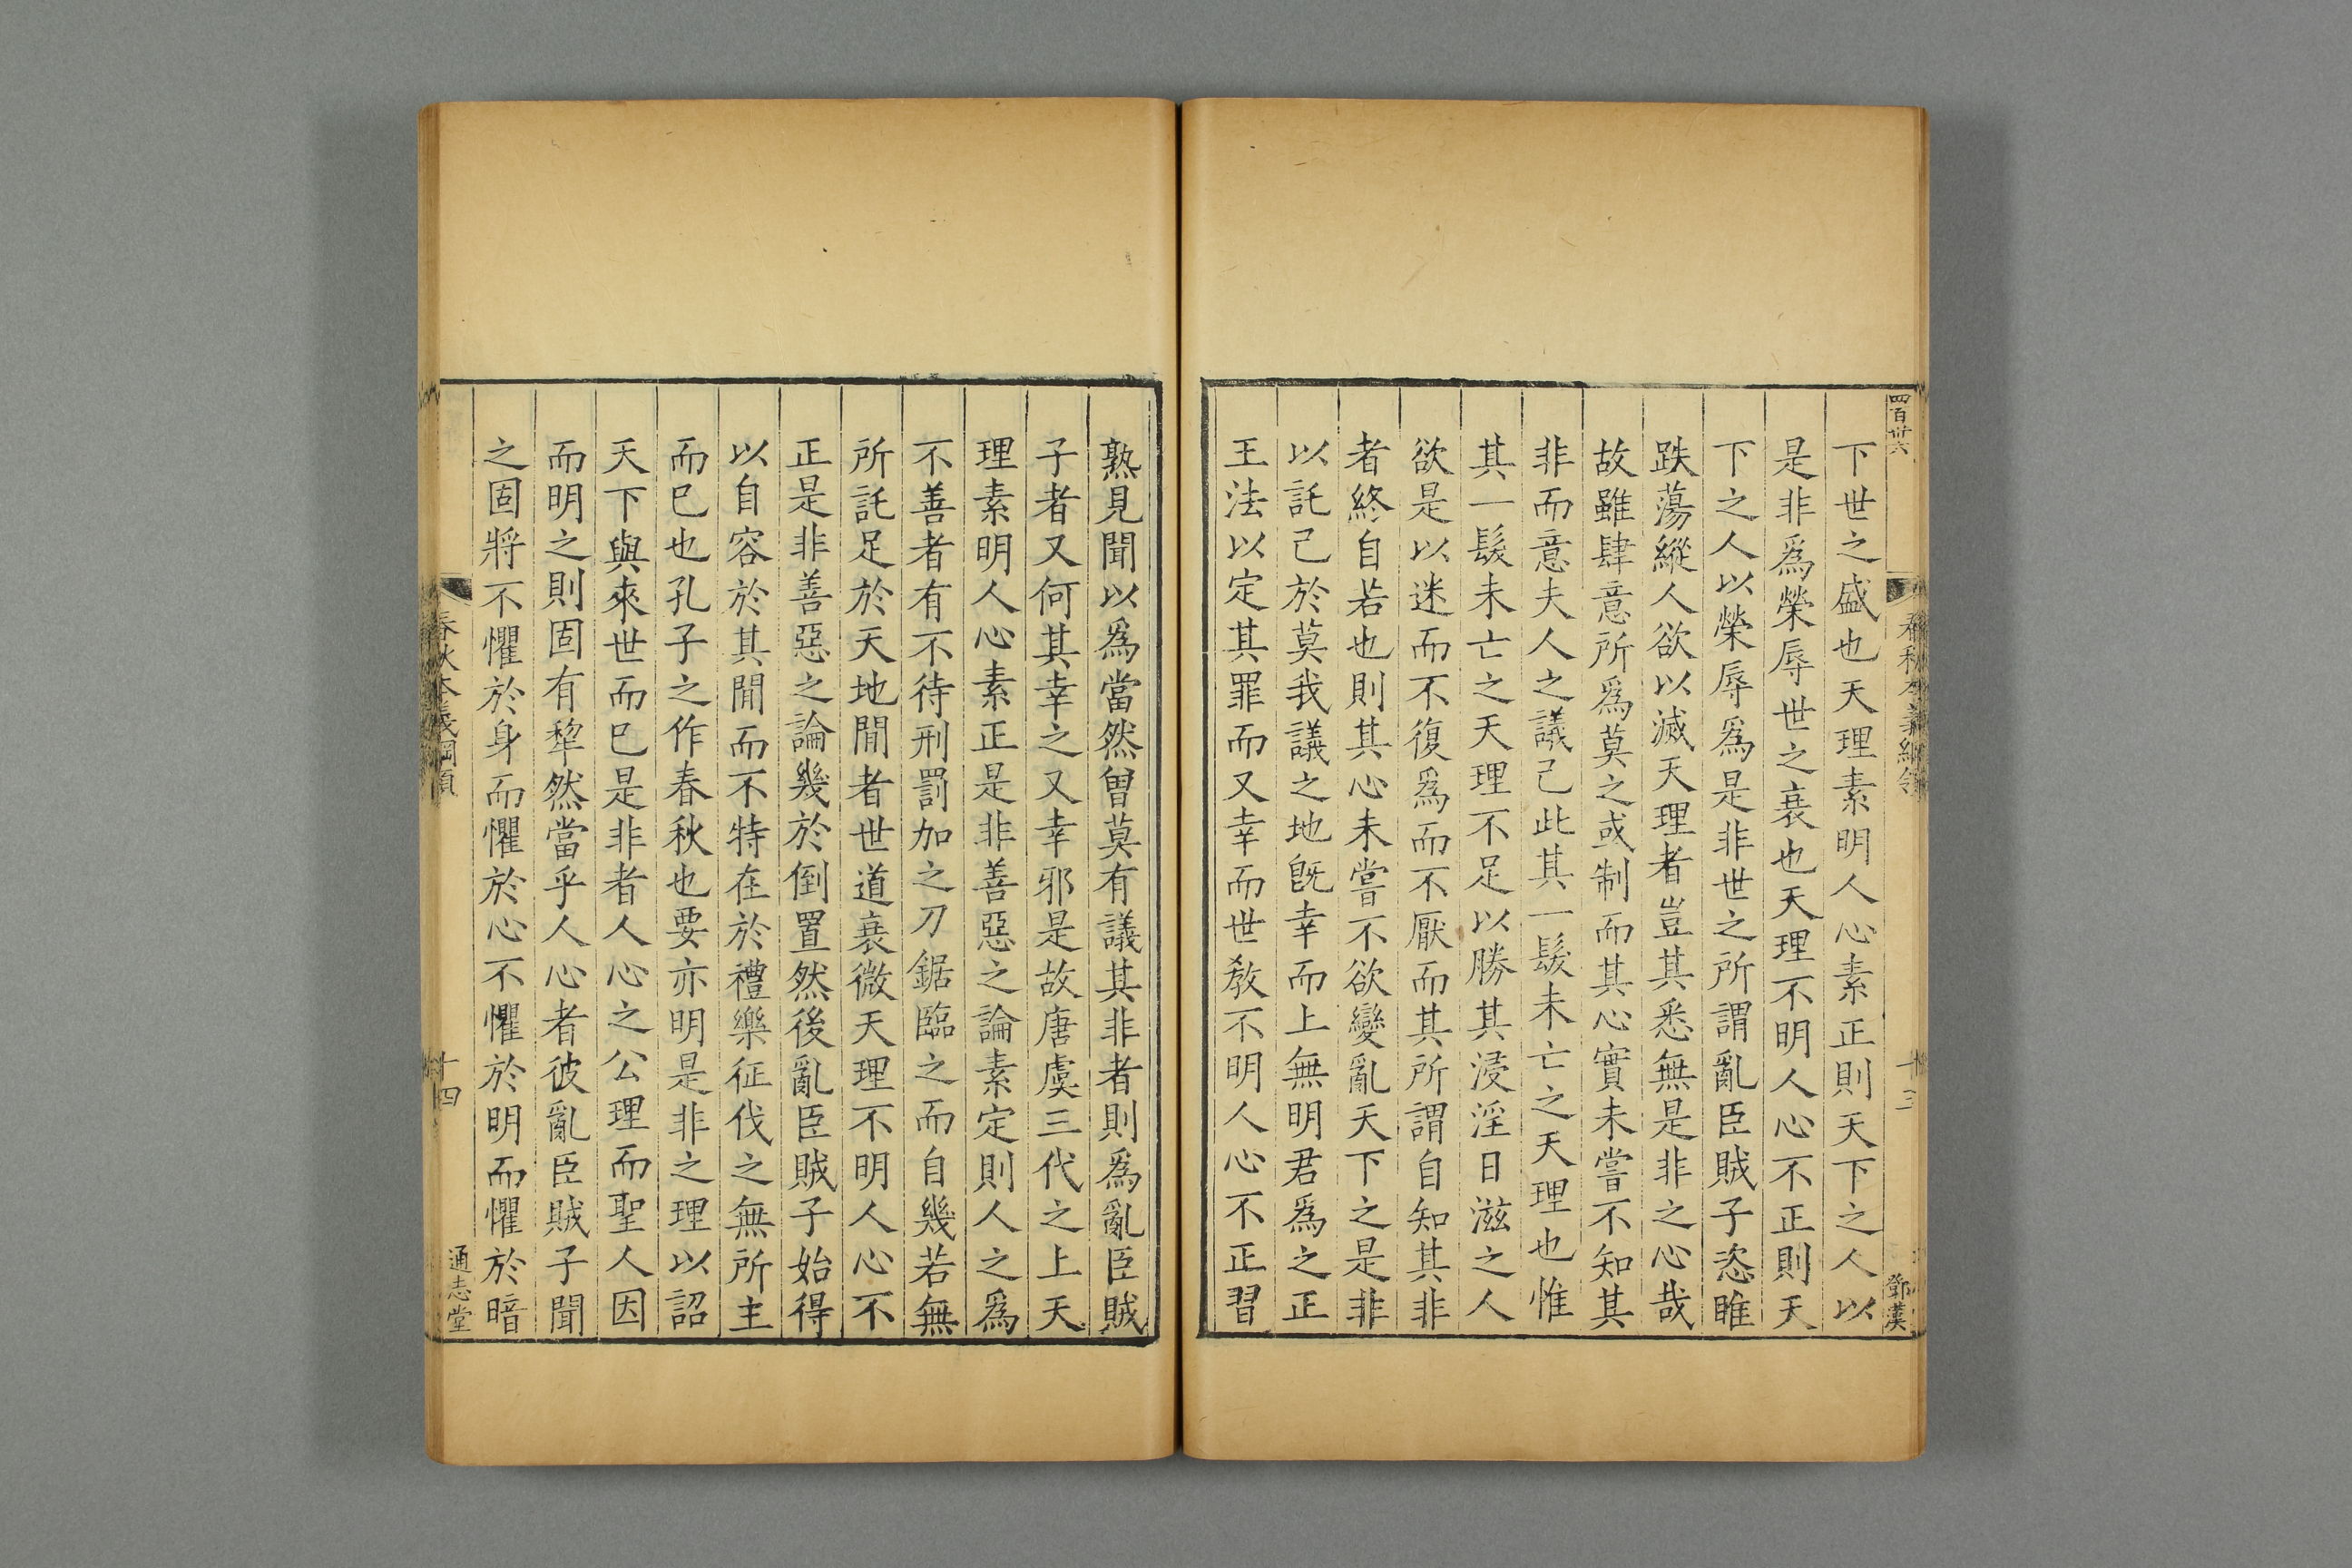 四百卅六
下世之盛也天理素明人心素正則天下之人以
是非爲榮辱世之衰也天理不明人心不正則天
下之人以榮辱爲是非世之所謂亂臣賊子恣睢
跌蕩縱人欲以滅天理者豈其悉無是非之心哉
故雖肆意所爲莫之或制而其心實未嘗不知其
非而意夫人之議己此其一髮未亡之天理也惟
其一髮未亡之天理不足以勝其浸淫日滋之人
欲是以迷而不復爲而不厭而其所謂自知其非
者終自若也則其心未嘗不欲變亂天下之是非
以託己於莫我議之地旣幸而上無明君爲之正
王法以定其罪而又幸而世敎不明人心不正習
春秋本義綱領
十三
鄧漢
熟見聞以爲當然曾莫有議其非者則爲亂臣賊
子者又何其幸之又幸邪是故唐虞三代之上天
理素明人心素正是非善惡之論素定則人之爲
不善者有不待刑罰加之刀鋸臨之而自幾若無
所託足於天地閒者世道衰微天理不明人心不
正是非善惡之論幾於倒置然後亂臣賊子始得
以自容於其閒而不特在於禮樂征伐之無所主
而巳也孔子之作春秋也要亦明是非之理以詔
天下與來世而巳是非者人心之公理而聖人因
而明之則固有犂然當乎人心者彼亂臣賊子聞
之固將不懼於身而懼於心不懼於明而懼於暗
春秋本義綱領
十四
通志堂